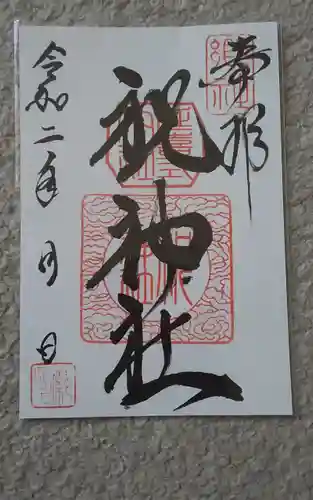 奉拝
祝神社
令和二年 月 日